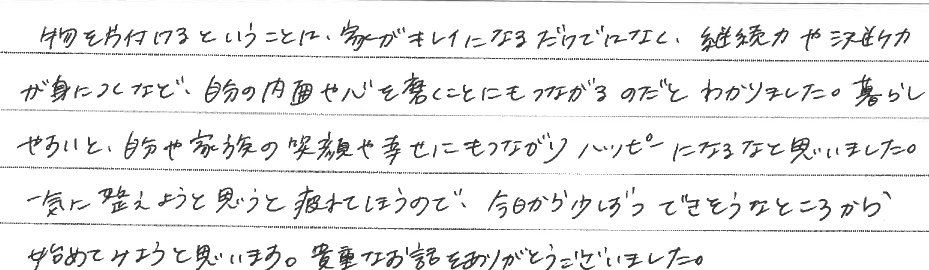 物を片付けるということは、家がキレイになるだけではなく、継続力や決断力
が身につくなど、自分の内面や心を磨くことにもつながるのだとわかりました。暮らし
やすいと、自分や家族の笑顔や幸せにもつながりハッピーになるなと思いました。
一気に整えようと思うと疲れてしまうので、今日から少しずつできそうなところから
始めてみようと思います。貴重なお話をありがとうございました。